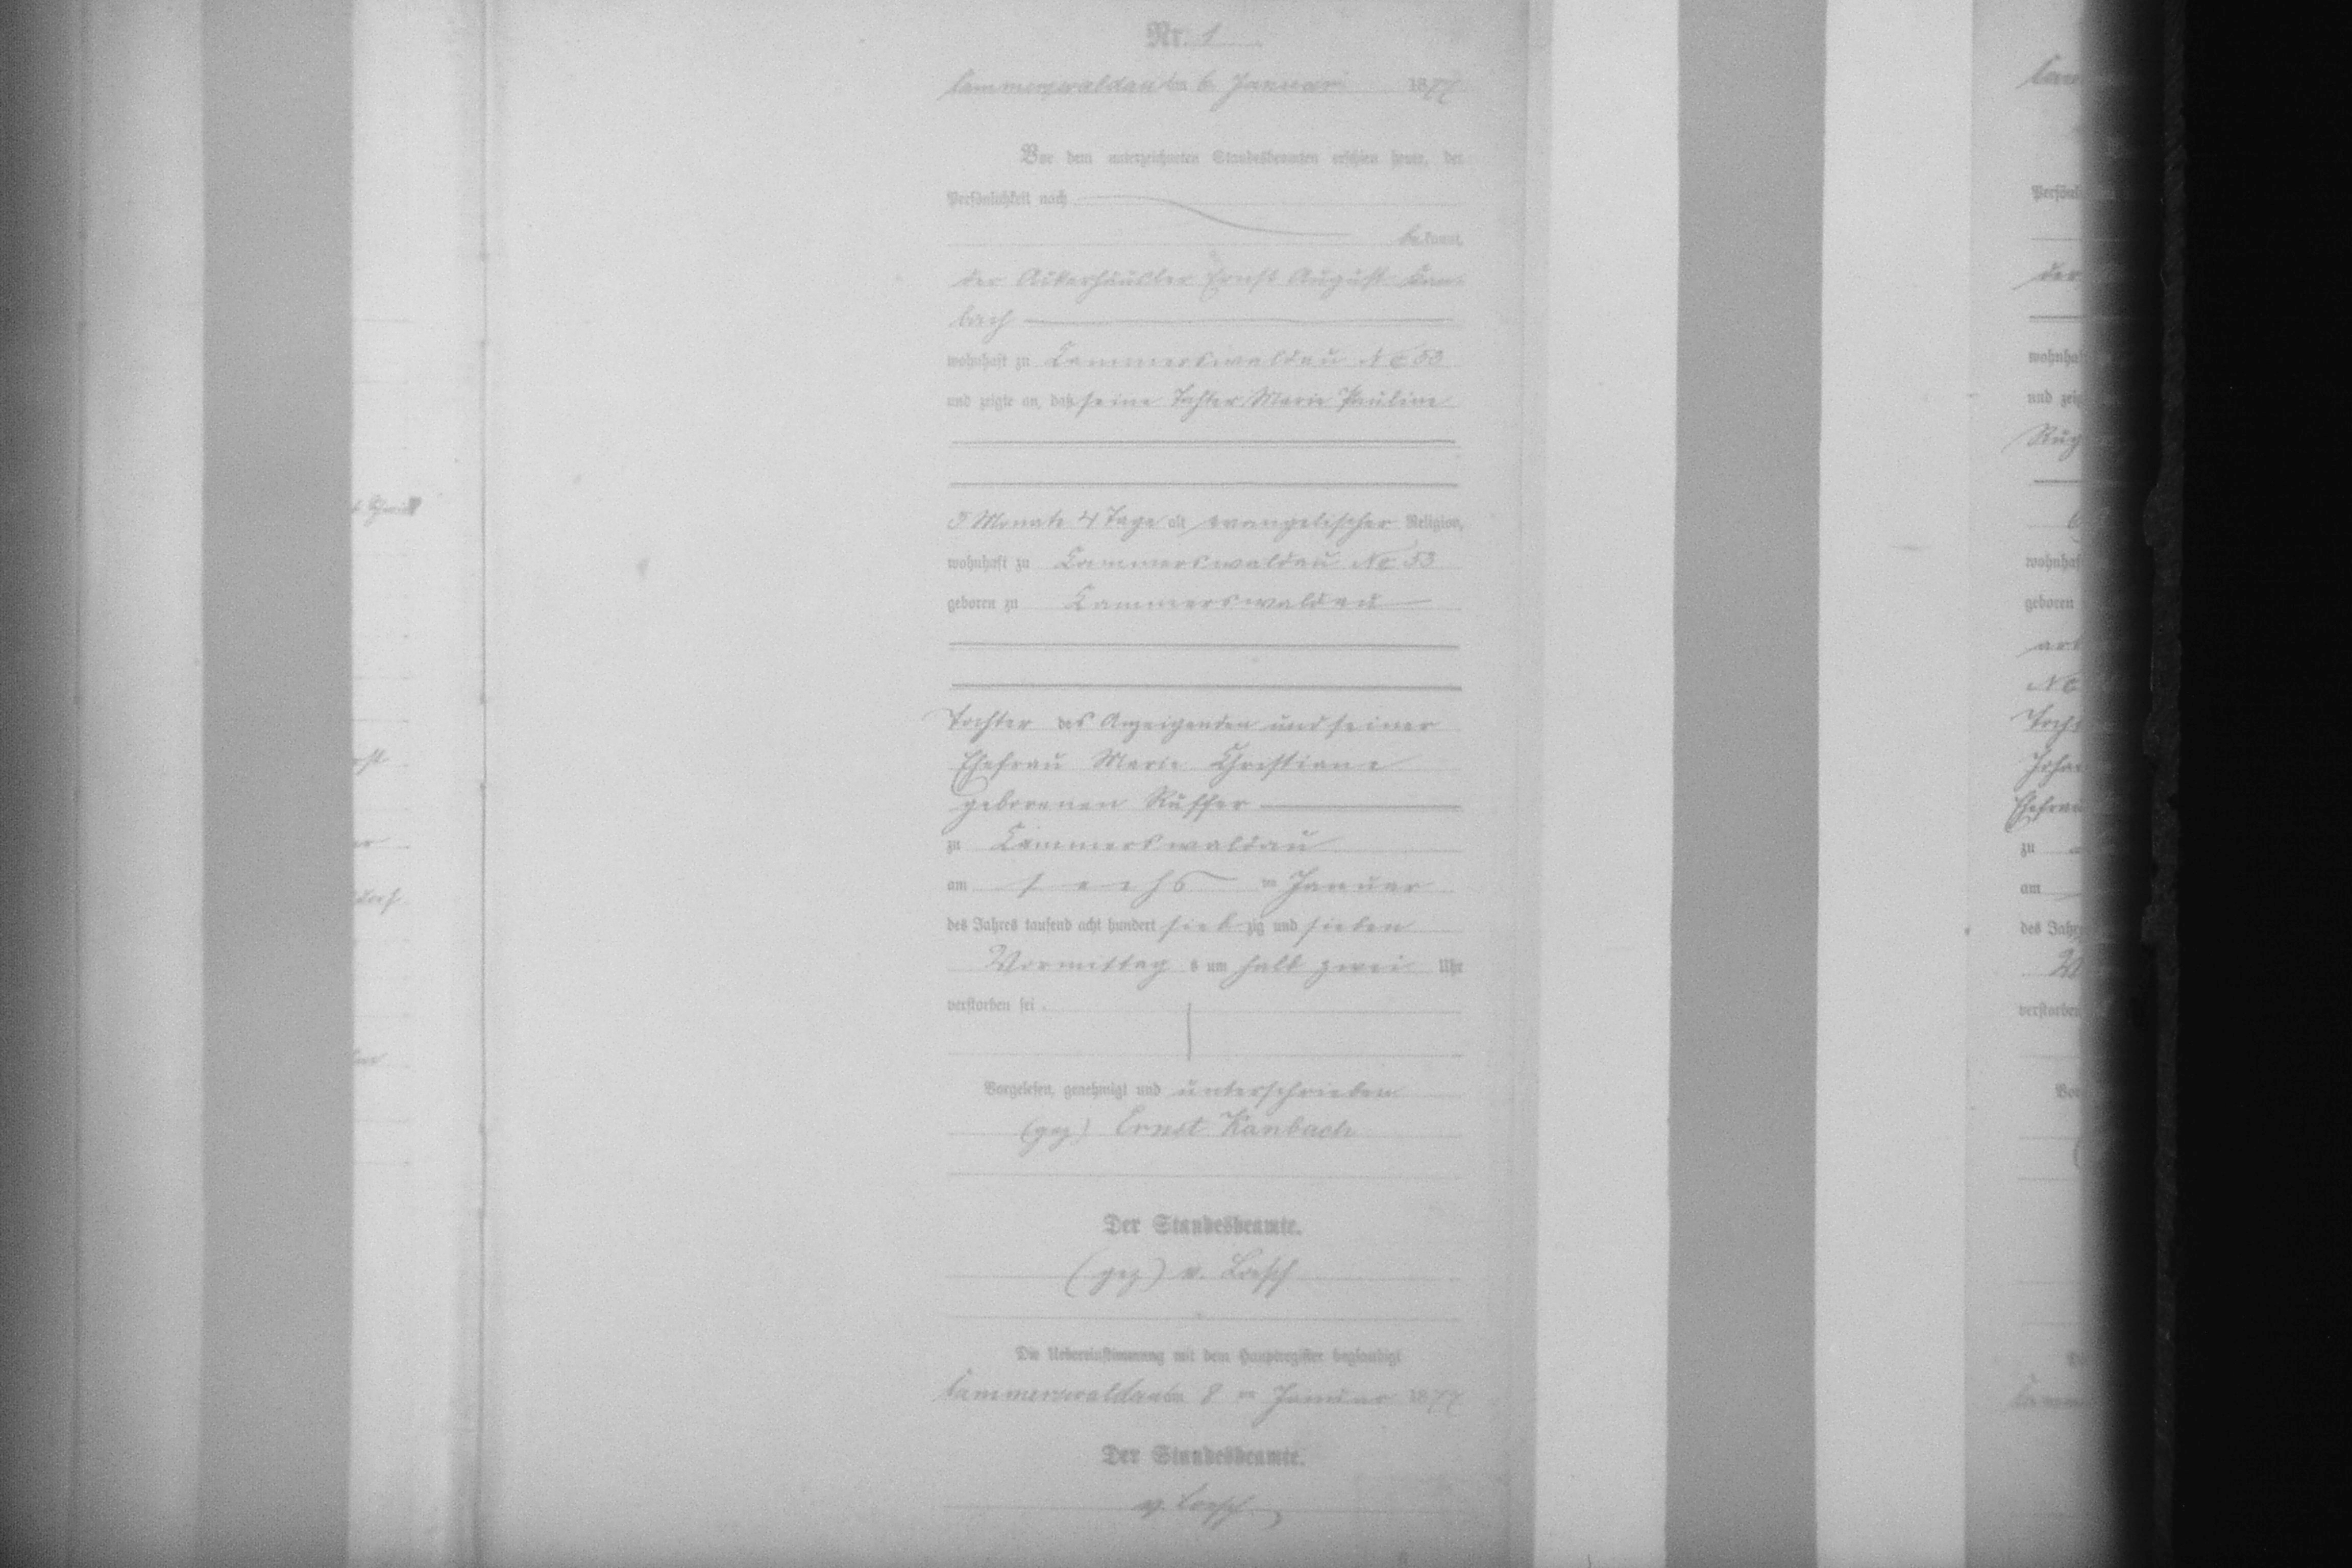 Nr. 1
Cammerswaldau am 6. Januar 1877
Vor dem unterzeichneten Standesbeamten erschien heute, der
Persönlichkeit nach
be kannt,
der Ackerhäusler Ernst August Kan-
bach
wohnhaft zu Cammerswaldau No 53
und zeigte an, daß seine Tochter Marie Pauline
5 Monate 4 Tage alt evangelischer Religion,
wohnhaft zu Cammerswaldau No 53
geboren zu Cammerswaldau
Tochter des Anzeigenden und seiner
Ehefrau Marie Christiane
geborenen Ruffer
zu Cammerswaldau
am sechs ten Januar
des Jahres tausend acht hundert sieb zig und sieben
Vormittag s um halb zwei Uhr
verstorben sei.
Vorgelesen, genehmigt und unterschrieben
(gez) Ernst Kanbach
Der Standesbeamte.
(gez) v. Loesch
Die Uebereinstimmung mit dem Hauptregister beglaubigt
Cammerswaldau am 8 ten Januar 1877
Der Standesbeamte.
v. Loesch
der
wohnhaf
und zeig
wohnhaf
geboren
No
zu
am
des Jahr
verstorben